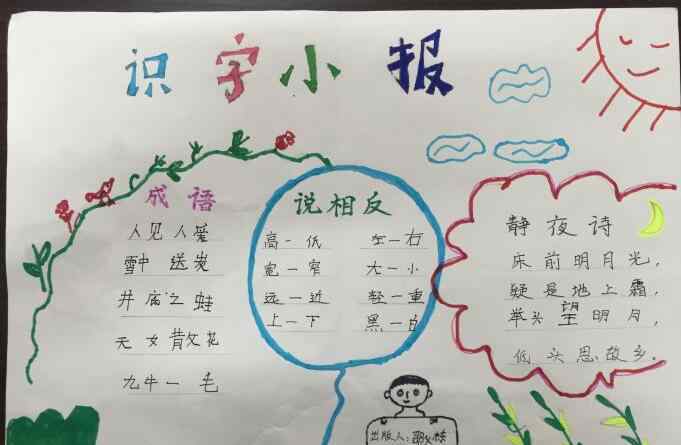 识字小报
成语
人见人爱
雪中送炭
井底之蛙
天女散花
九牛一毛
说相反
高—低 左—右
宽—窄 大—小
远—近 轻—重
上—下 黑—白
静夜诗
床前明月光，
疑是地上霜，
举头望明月，
低头思故乡。
出版人：